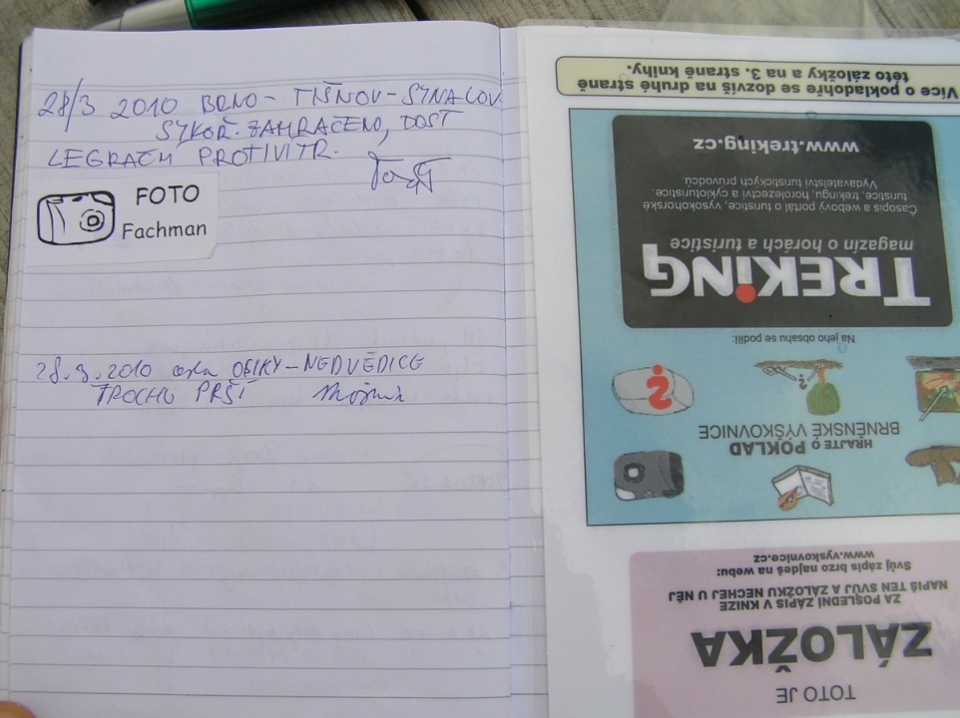 28/3 2010 BRNO - TIŠNOV - SYNALOV
SÝKOŘ. ZAMRAČENO, DOST
LEGRAČNÍ PROTIVÍTR.
FOTO
Fachman
28.3.2010 OBIKY - NEDVĚDICE
TROCHU PRŠÍ
TOTO JE
ZÁLOŽKA
ZA POSLEDNÍ ZÁPIS V KNIZE
NAPIŠ TEN SVŮJ A ZÁLOŽKU NECHEJ U NĚJ
Svůj zápis brzo najdeš na webu:
www.vyskovnice.cz
HRAJTE O POKLAD
BRNĚNSKÉ VÝŠKOVNICE
Na jeho obsahu se podílí:
TREKING
magazín o horách a turistice
Časopis a webový portál o turistice, vysokohorské
turistice, trekingu, horolezectví a cykloturistice.
Vydavatelství turistických průvodců.
www.treking.cz
Více o pokladohře se dozvíš na druhé straně
této záložky a na 3. straně knihy.